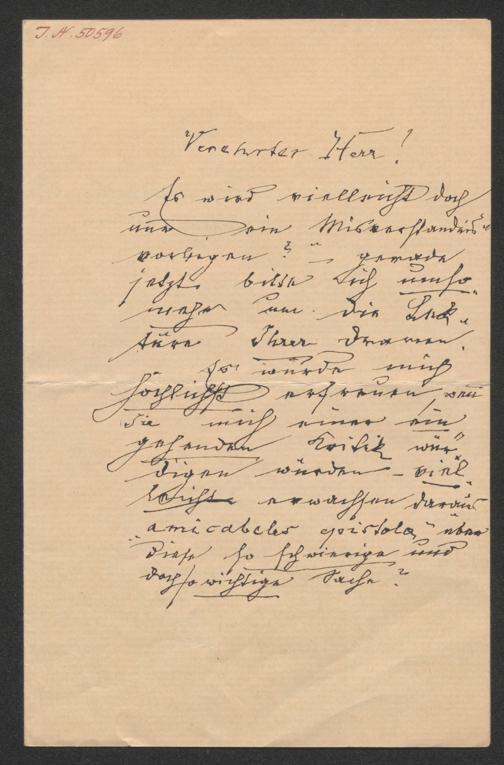 J. N. 50596
Verehrter Herr!
Es wird vielleicht doch
nur ein Misverständnis
vorliegen? – gerade
jetzt bitte ich umso-
mehr um die Lek-
türe Ihrer Dramen.
Es würde mich
höchlichst erfreuen, wenn
Sie mich einer ein
gehenden Kritik wür-
digen würden – viel-
leicht erwachsen daraus
"amicables epistolae" über
diese so schwierige und
doch so wichtige Sache?